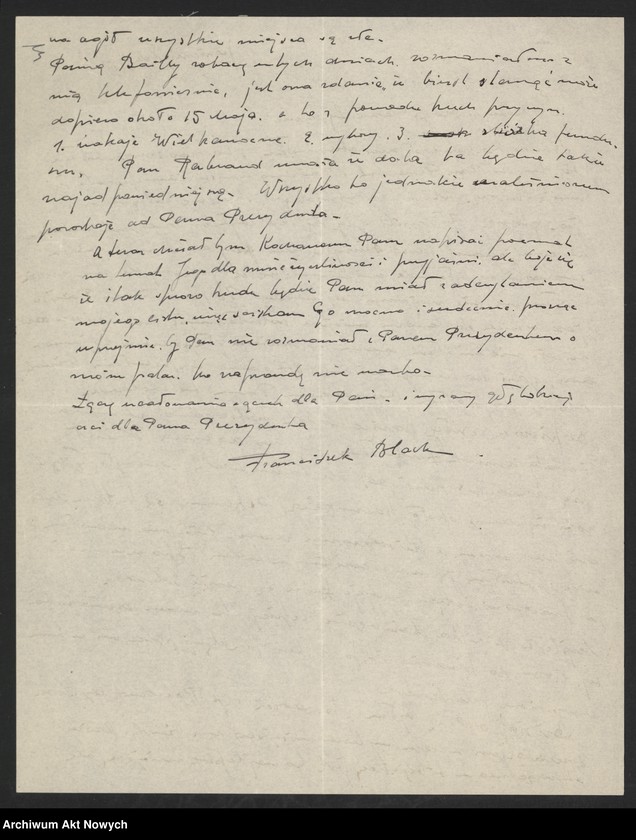 na ogół wszystkie miejsca są złe.
Panią Bailly zobaczę w tych dniach, rozmawiałem z
nią telefonicznie, jest ona zdania, że biust stanąć może
dopiero około 15 Maja, a to z powodu trzech przyczyn.
1. wakacje Wielkanocne. 2. wybory. 3. zbiórka fundu-
szu, Pan Rabaud uważa że doba ta będzie także
najodpowiedniejszą. Wszystko to jednakże
pozostaje od Pana Prezydenta.
A teraz chciałbym Kochanemu Panu napisać poemat
na temat Jego dla mnie życzliwości i przyjaźni, ale boję się
że i tak sporo trudu będzie Pan miał z odczytaniem
mojego listu, więc ściskam Go mocno i serdecznie, prosząc
uprzejmie, by Pan nie rozmawiał z Panem Prezydentem o
moim bo naprawdę nie warto.
Łączę ucałowania rączek dla Pani. i wyrazy głębokiej
czci dla Pana Prezydenta
Franciszek Black
Archiwum Akt Nowych